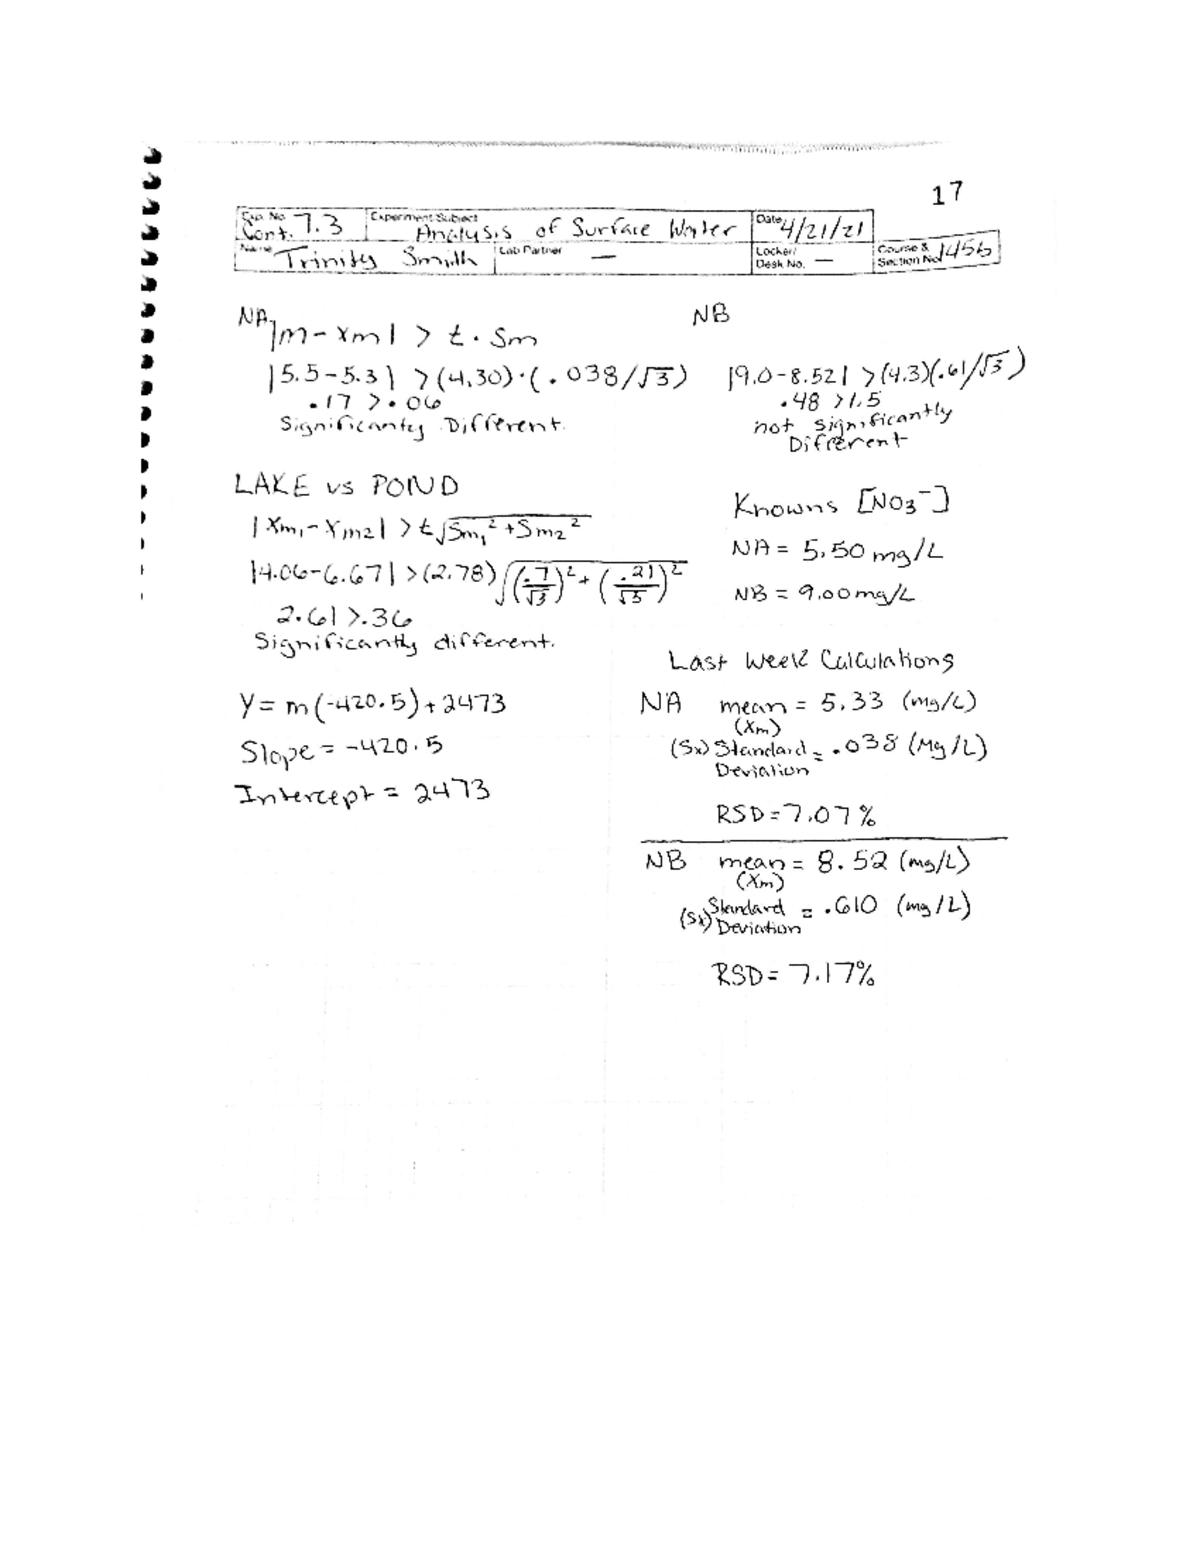 17
Exp. No. Cont. 7.3 Experiment/Subject Analysis of Surface Water Date 4/21/21
Name Trinity Smith Lab Partner — Locker/Desk No. — Course & Section No. 1456
NA
|m - xm| > t · Sm
|5.5-5.3| >(4.30)·(.038/√3)
.17 >.06
Significantly Different.
NB
|9.0-8.52| >(4.3)(.61/√3)
.48 >1.5
not significantly
Different
LAKE vs POND
|Xm₁-Xm2| > t√Sm₁²+Sm₂²
|4.06-6.67| >(2.78)√(.7/√3)²+(.21/√3)²
2.61 >.36
Significantly different.
Y= m(-420.5)+2473
Slope = -420.5
Intercept = 2473
Knowns [NO3⁻]
NA = 5.50 mg/L
NB = 9.00mg/L
Last Week Calculations
NA mean = 5.33 (mg/L)
(Xm)
(Sx) Standard = .038 (Mg/L)
Deviation
RSD=7.07%
NB mean = 8.52 (mg/L)
(Xm)
(Sx) Standard = .610 (mg/L)
Deviation
RSD= 7.17%